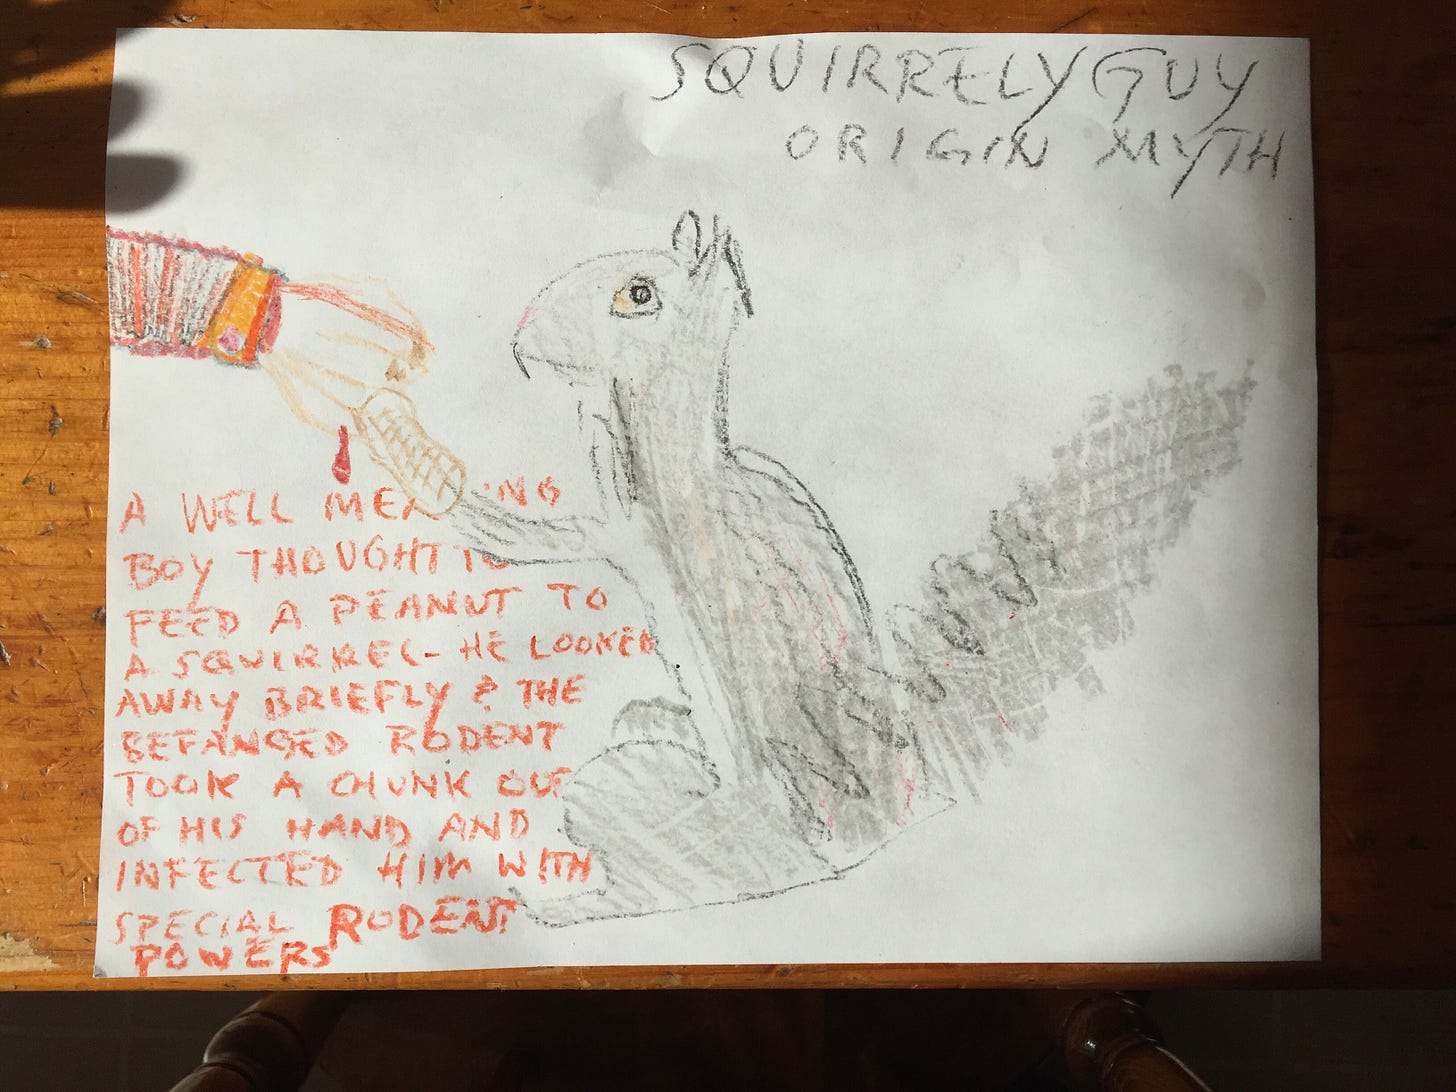 SQUIRRELY GUY
ORIGIN MYTH
A WELL MEANING
BOY THOUGHT TO
FEED A PEANUT TO
A SQUIRREL - HE LOOKED
AWAY BRIEFLY & THE
BEFANGED RODENT
TOOK A CHUNK OUT
OF HIS HAND AND
INFECTED HIM WITH
SPECIAL RODENT
POWERS